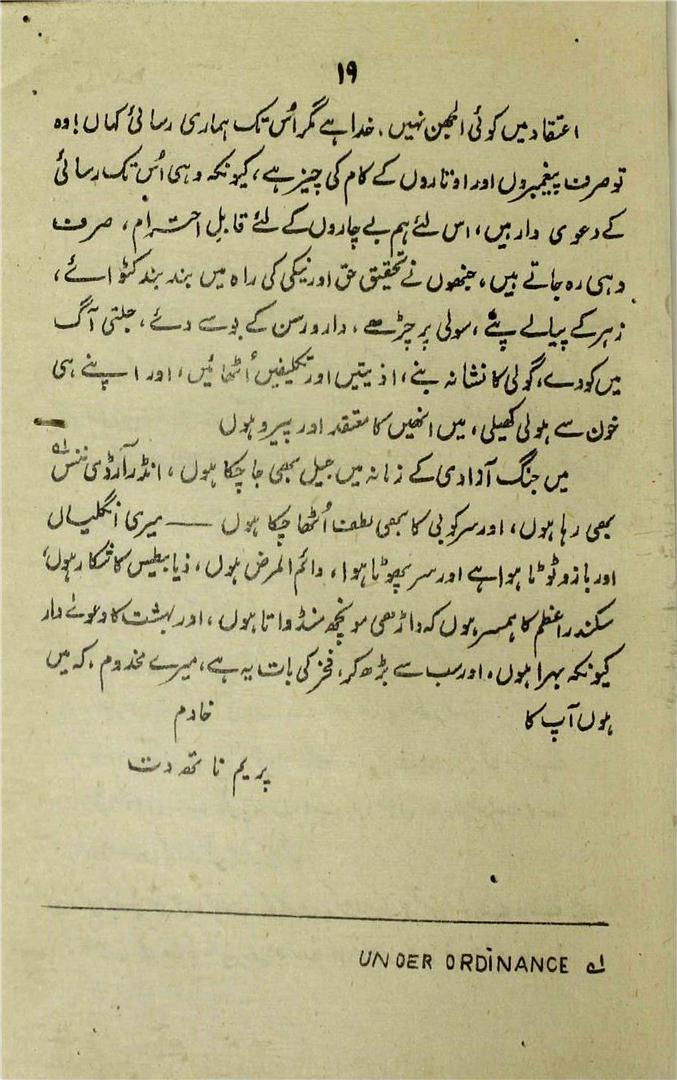 ۱۹
اعتقاد میں کوئی الجھن نہیں۔ خدا ہے مگر اُس تک ہماری رسائی کہاں! وہ
تو صرف پیغمبروں اور اوتاروں کے کام کی چیز ہے، کیونکہ وہی اُس تک رسائی
کے دعوی دار ہیں، اس لئے ہم بے چاروں کے لئے قابلِ احترام، صرف
وہی رہ جاتے ہیں، جنھوں نے تحقیق حق اور نیکی کی راہ میں بند بند کٹوائے،
زہر کے پیالے پئے، سولی پر چڑھے، دار و رسن کے بوسے دئے، جلتی آگ
میں کودے، گولی کا نشانہ بنے، اذیتیں اور تکلیفیں اُٹھائیں، اور اپنے ہی
خون سے ہولی کھیلی، میں انھیں کا معتقد اور پیرو ہوں
میں جنگ آزادی کے زمانہ میں جیل بھی جا چکا ہوں، انڈر آرڈی ننس لے
بھی رہا ہوں، اور سرکوبی کا بھی لطف اُٹھا چکا ہوں —— میری انگلیاں
اور بازو ٹوٹا ہوا ہے اور سر پھوٹا ہوا، دائم المرض ہوں، ذیابیطس کا شکار ہوں،
سکندر اعظم کا ہمسر ہوں کہ داڑھی مونچھ منڈواتا ہوں، اور بہشت کا دعوےٰ دار
کیونکہ بہرا ہوں۔ اور سب سے بڑھ کر، فخر کی بات یہ ہے، میرے مخدوم۔ کہ میں
ہوں آپ کا خادم
پریم ناتھ دت
لے UNDER ORDINANCE